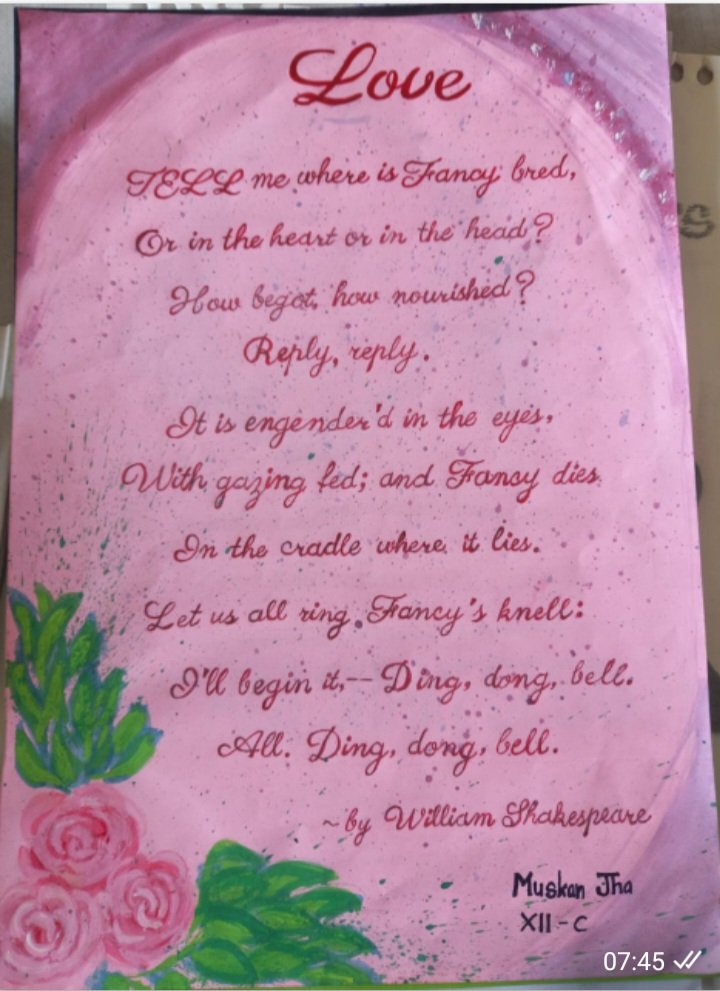 Love
TELL me where is Fancy bred,
Or in the heart or in the head?
How begot, how nourished?
Reply, reply.
It is engender'd in the eyes,
With gazing fed; and Fancy dies
In the cradle where it lies.
Let us all ring Fancy's knell:
I'll begin it,-- Ding, dong, bell.
All. Ding, dong, bell.
~by William Shakespeare
Muskan Jha
XII-C
07:45